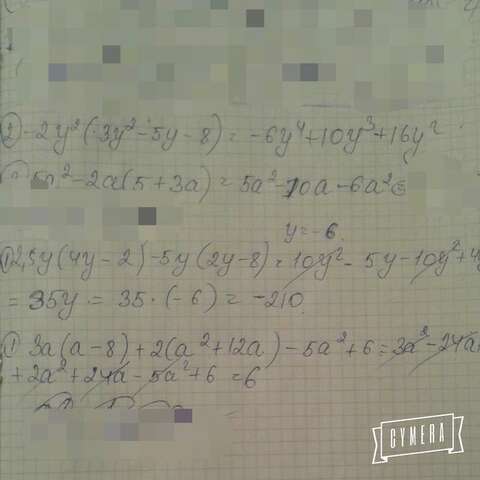 ② -2y²(3y²-5y-8) = -6y⁴+10y³+16y²
5a²-2a(5+3a) = 5a²-10a-6a²=
y=-6.
① 2,5y(4y-2)-5y(2y-8)=10y²-5y-10y²+4
= 35y = 35·(-6) = -210.
① 3a(a-8)+2(a²+12a)-5a²+6=3a²-24a
+2a²+24a-5a²+6=6
CYMERA